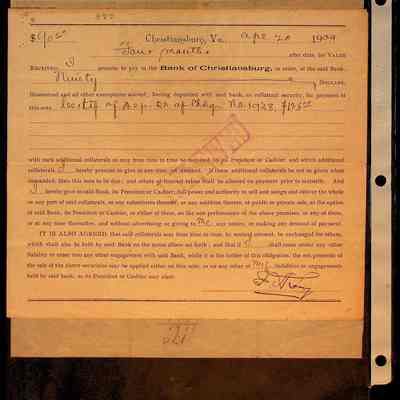 $90.00 Christiansburg, Va. Apr. 20 1909
Four months after date, for VALUE
RECEIVED, I promise to pay to the Bank of Christiansburg, in order, at the said Bank
Ninety DOLLARS,
Homestead and all other exemptions waived, having deposited with said bank, as collateral security, for payment of
this note, No. 1928, $125.00
with such additional collaterals as may from time to time be required by its President or Cashier, and which additional
collaterals I hereby promise to give at any time on demand. If these additional collaterals be not so given when
demanded, then this note to be due; and rebate of interest taken shall be allowed on payment prior to maturity. And
I hereby give to said Bank, its President or Cashier, full power and authority to sell and assign and deliver the whole
or any part of said collaterals, or any substitutes therefor, or any additions thereto, at public or private sale, at the option
of said Bank, its President or Cashier, or either of them, on the non-performance of the above promises, or any of them,
or at any time thereafter, and without advertising or giving to me any notice, or making any demand of payment.
IT IS ALSO AGREED, that said collaterals may from time to time, by mutual consent, be exchanged for others,
which shall also be held by said Bank on the terms above set forth; and that if I shall come under any other
liability or enter into any other engagement with said Bank, while it is the holder of this obligation, the net proceeds of
the sale of the above securities may be applied either on this note, or on any other of my liabilities or engagements
held by said bank, as its President or Cashier may elect.